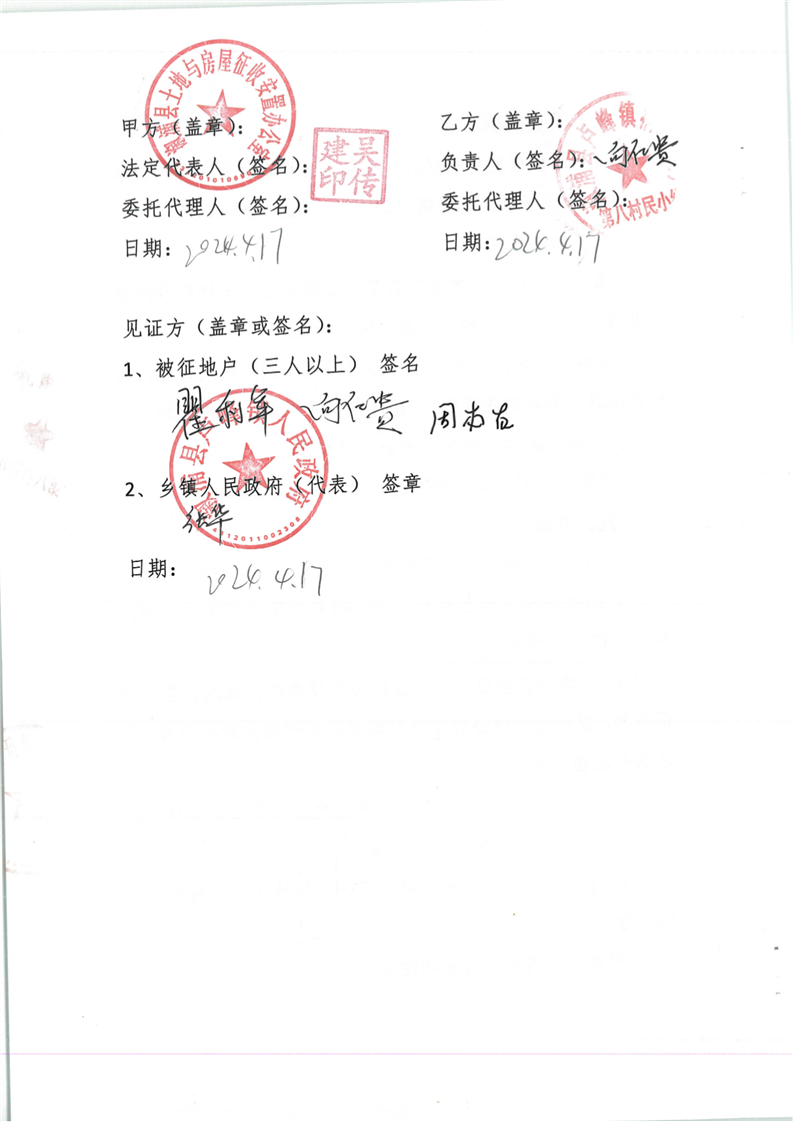 溆浦县土地与房屋征收安置办公室
甲方（盖章）：
法定代表人（签名）：
吴传建印
委托代理人（签名）：
日期：2024.4.17
乙方（盖章）：
负责人（签名）：向石贵
委托代理人（签名）：
第八村民小
日期：2024.4.17
见证方（盖章或签名）：
1、被征地户（三人以上） 签名
向石贵
2、乡镇人民政府（代表） 签章
镇人民政府
张华
日期：2024.4.17